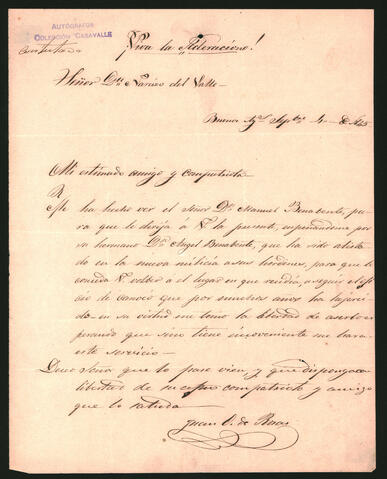 AUTÓGRAFOS
COLECCIÓN CASAVALLE
Contestada
¡Viva la Federacion!
Señor Dn. Narciso del Valle
Buenos Ays. Sepbre
Mi estimado amigo y compatriota
Me ha hecho ver el Señor Dn. Manuel Benavente, pa
ra que le dirija á V. la presente, empeñandome por
su hermano Dn. Angel Benavente, que ha sido alista
do en la nueva milicia a sus hordenes, para que le
conceda V. volber a el lugar en que rendia, a seguir el ofi
cio de que por muchos años ha
do en su virtud me tomo la libertad de aserlo es
perando que sino tiene inconveniente me hara
este servicio
Deceo Señor que lo pase vien, y que disponga con
libertad de su compatriota y amigo
que lo saluda
Juan de Rosas